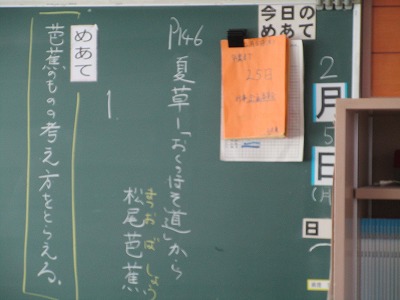 今日の
めあて
2
月
5
日
(月)
日
25日
P146
夏草―「おくのほそ道」から
松尾芭蕉
まつおばしょう
1.
めあて
芭蕉のものの考え方をとらえる。